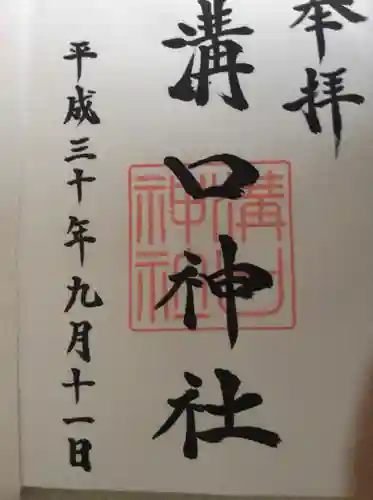 奉拝
溝口神社
平成三十年九月十一日
溝口
神社